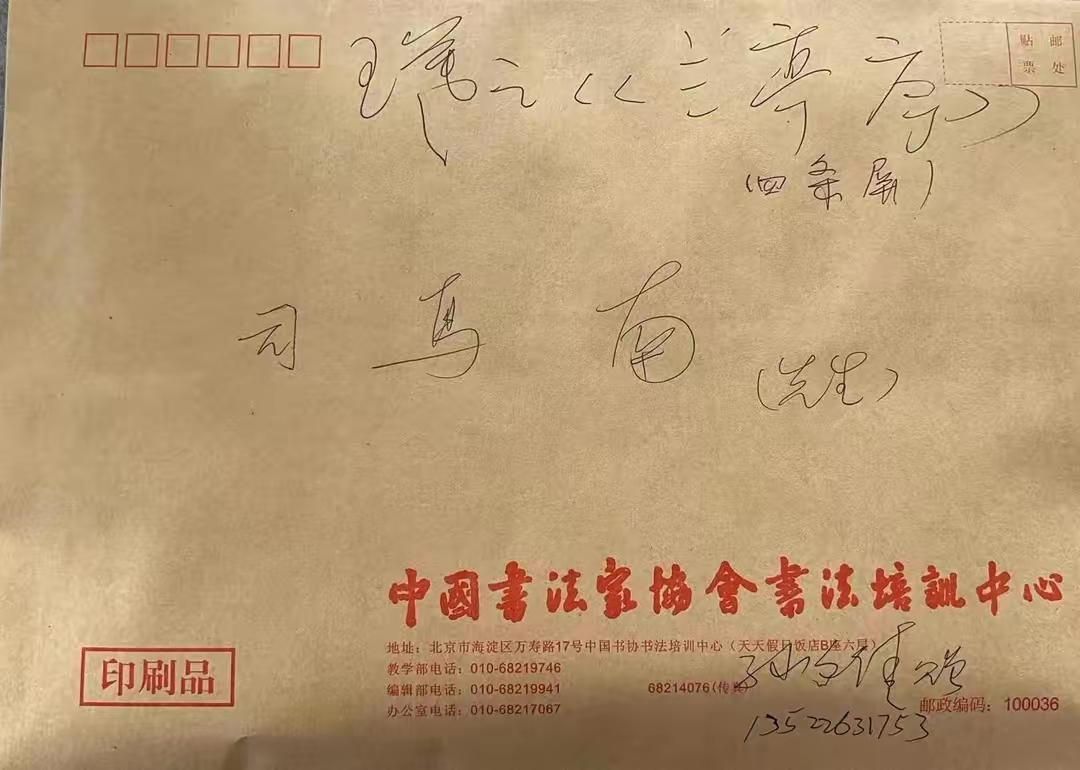 贴 邮
票 处
羲之《兰亭序》
(四条屏)
司马南
(先生)
中國書法家協會書法培訓中心
地址：北京市海淀区万寿路17号中国书协书法培训中心（天天假日饭店B座六层）
教学部电话：010-68219746
编辑部电话：010-68219941 68214076(传真)
办公室电话：010-68217067
印刷品
邮政编码：100036
13522631753